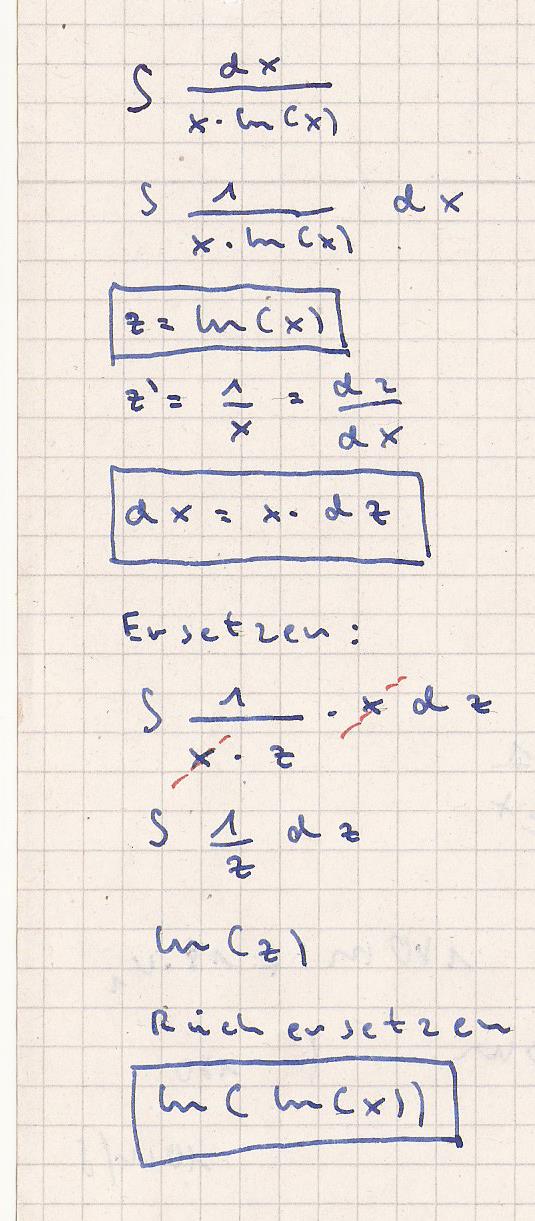 ∫ dx / x · ln(x)
∫ 1 / x · ln(x) dx
z = ln(x)
z' = 1/x = dz/dx
dx = x · dz
Ersetzen:
∫ 1 / x · z · x dz
∫ 1/z dz
ln(z)
Rückersetzen
ln( ln(x))